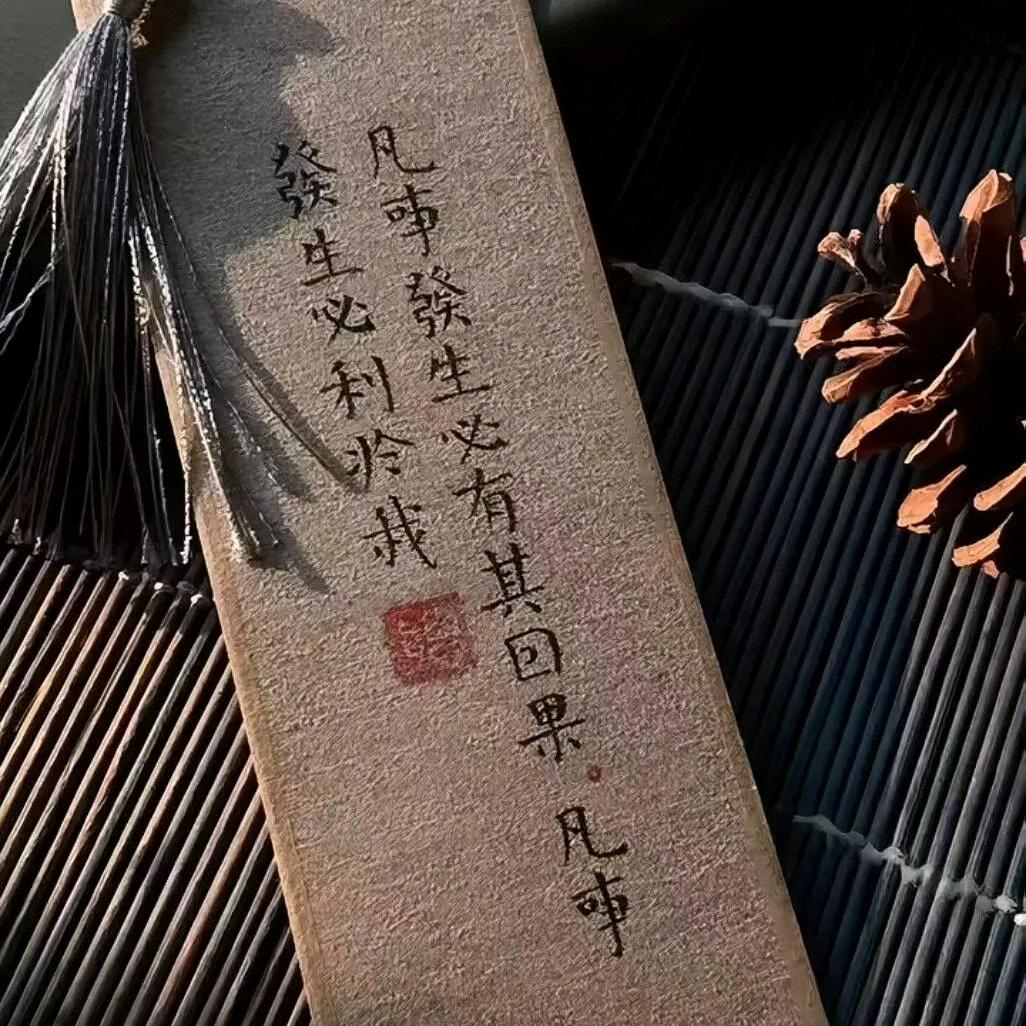 凡事發生必有其因果。凡事
發生必利於我